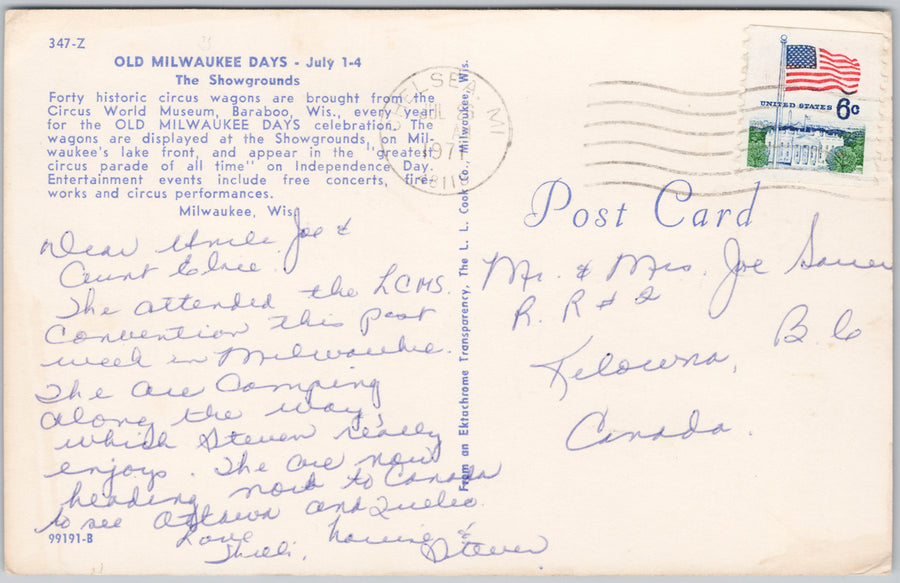 347-Z
OLD MILWAUKEE DAYS - July 1-4
The Showgrounds
Forty historic circus wagons are brought from the
Circus World Museum, Baraboo, Wis., every year
for the OLD MILWAUKEE DAYS celebration. The
wagons are displayed at the Showgrounds, on Mil-
waukee's lake front, and appear in the "greatest
circus parade of all time" on Independence Day.
Entertainment events include free concerts, fire-
works and circus performances.
Milwaukee, Wis.
Dear Uncle Joe &
Aunt Elsie.
The attended the LCMS.
Convention this past
week in Milwaukee.
The are Camping
along the way,
which Steven really
enjoys. The are now
heading north to Canada
to see Ottawa and Quebec.
Love
&
Steven
99191-B
From an Ektachrome Transparency, The L. L. Cook Co., Milwaukee, Wis.
CHELSEA, MI
JUL
1971
48118
UNITED STATES 6c
Post Card
Mr. & Mrs. Joe Sauer
R. R # 2
Kelowna, B C
Canada.